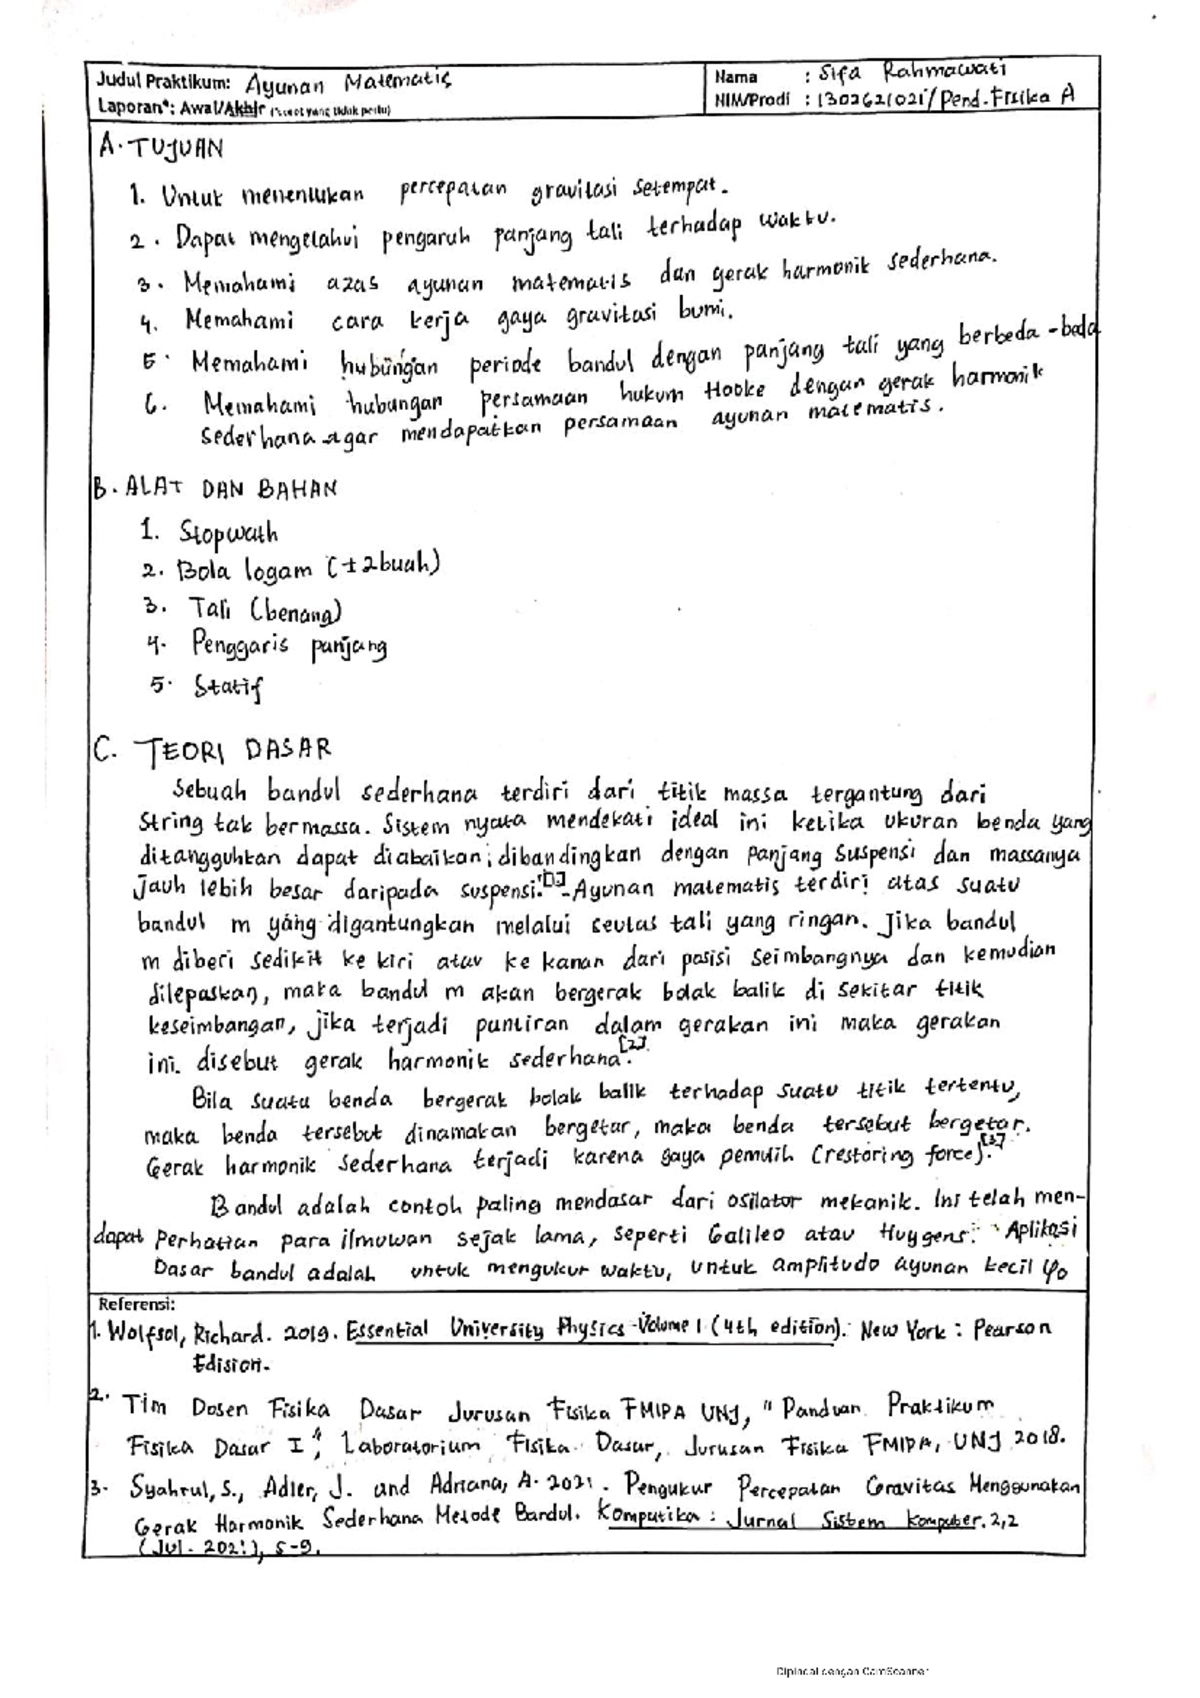 Judul Praktikum: Ayunan Matematis
Laporan*: Awal/Akhir (*coret yang tidak perlu)
Nama : Sifa Rahmawati
NIM/Prodi : 1302621021/Pend.Fisika A
A. TUJUAN
1. Untuk menentukan percepatan gravitasi setempat.
2. Dapat mengetahui pengaruh panjang tali terhadap waktu.
3. Memahami azas ayunan matematis dan gerak harmonik sederhana.
4. Memahami cara kerja gaya gravitasi bumi.
5. Memahami hubungan periode bandul dengan panjang tali yang berbeda-beda
6. Memahami hubungan persamaan hukum Hooke dengan gerak harmonik
sederhana agar mendapatkan persamaan ayunan matematis.
B. ALAT DAN BAHAN
1. Stopwath
2. Bola logam (±2buah)
3. Tali (benang)
4. Penggaris panjang
5. Statif
C. TEORI DASAR
Sebuah bandul sederhana terdiri dari titik massa tergantung dari
string tak bermassa. Sistem nyata mendekati ideal ini ketika ukuran benda yang
ditangguhkan dapat diabaikan, dibandingkan dengan panjang suspensi dan massanya
jauh lebih besar daripada suspensi.[1] Ayunan matematis terdiri atas suatu
bandul m yang digantungkan melalui seutas tali yang ringan. Jika bandul
m diberi sedikit ke kiri atau ke kanan dari posisi seimbangnya dan kemudian
dilepaskan, maka bandul m akan bergerak bolak balik di sekitar titik
keseimbangan, jika terjadi puntiran dalam gerakan ini maka gerakan
ini disebut gerak harmonik sederhana.[2]
Bila suatu benda bergerak bolak balik terhadap suatu titik tertentu,
maka benda tersebut dinamakan bergetar, maka benda tersebut bergetar.
Gerak harmonik sederhana terjadi karena gaya pemulih (restoring force).[3]
Bandul adalah contoh paling mendasar dari osilator mekanik. Ini telah men-
dapat perhatian para ilmuwan sejak lama, seperti Galileo atau Huygens. Aplikasi
Dasar bandul adalah untuk mengukur waktu, untuk amplitudo ayunan kecil φ₀
Referensi:
1. Wolfsol, Richard. 2019. Essential University Physics Volume 1 (4th edition). New York : Pearson
Edision.
2. Tim Dosen Fisika Dasar Jurusan Fisika FMIPA UNJ, "Panduan Praktikum
Fisika Dasar I", Laboratorium Fisika Dasar, Jurusan Fisika FMIPA, UNJ 2018.
3. Syahrul, S., Adler, J. and Adriana, A. 2021. Pengukur Percepatan Gravitas Menggunakan
Gerak Harmonik Sederhana Metode Bandul. Komputika : Jurnal Sistem Komputer. 2,2
(Jul. 2021), 5-9.
Dipindai dengan CamScanner